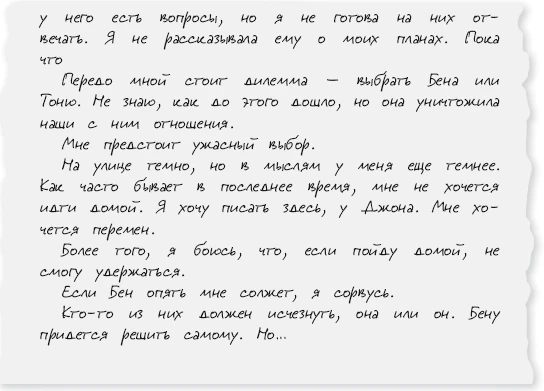 у него есть вопросы, но я не готова на них от-
вечать. Я не рассказывала ему о моих планах. Пока
что
Передо мной стоит дилемма — выбрать Бена или
Тоню. Не знаю, как до этого дошло, но она уничтожила
наши с ним отношения.
Мне предстоит ужасный выбор.
На улице темно, но в мыслям у меня еще темнее.
Как часто бывает в последнее время, мне не хочется
идти домой. Я хочу писать здесь, у Джона. Мне хо-
чется перемен.
Более того, я боюсь, что, если пойду домой, не
смогу удержаться.
Если Бен опять мне солжет, я сорвусь.
Кто-то из них должен исчезнуть, она или он. Бену
придется решить самому. Но...